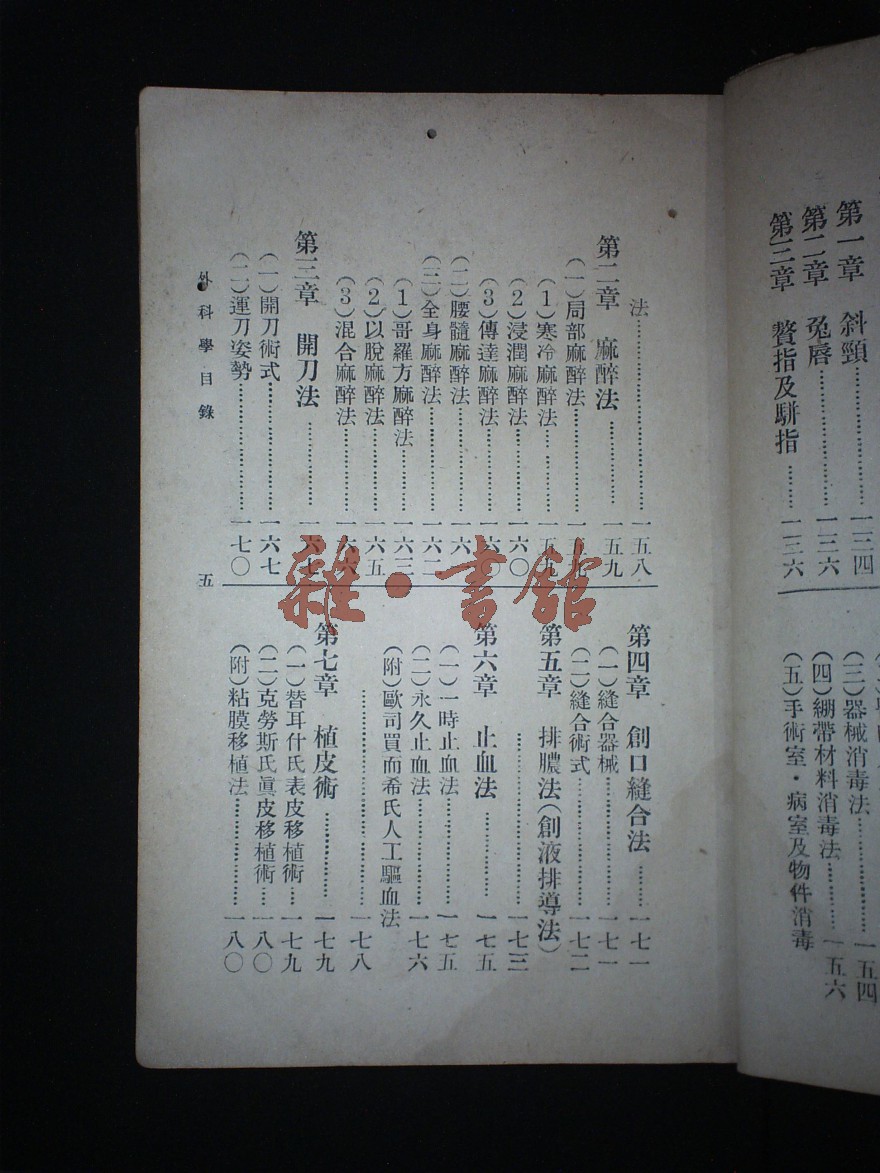 第一章　斜頸…………一三四
第二章　兔唇…………一三六
第三章　贅指及駢指……一三六
(三)器械消毒法…………一五四
(四)綳帶材料消毒法…………一五六
(五)手術室・病室及物件消毒
法…………一五八
第二章　麻醉法…………一五九
(一)局部麻醉法…………一五九
(1)寒冷麻醉法…………一五九
(2)浸潤麻醉法…………一六〇
(3)傳達麻醉法…………一六〇
(二)腰髓麻醉法…………一六
(三)全身麻醉法…………一六二
(1)哥羅方麻醉法……一六三
(2)以脫麻醉法…………一六五
(3)混合麻醉法…………一六六
第三章　開刀法…………一六七
(一)開刀術式…………一六七
(二)運刀姿勢…………一七〇
第四章　創口縫合法……一七一
(一)縫合器械…………一七一
(二)縫合術式…………一七二
第五章　排膿法(創液排導法)
…………一七三
第六章　止血法…………一七五
(一)一時止血法…………一七五
(二)永久止血法…………一七六
(附)歐司買而希氏人工驅血法
…………一七八
第七章　植皮術…………一七九
(一)替耳什氏表皮移植術…一七九
(二)克勞斯氏眞皮移植術…一八〇
(附)粘膜移植法…………一八〇
外科學目錄
五
雜・書館